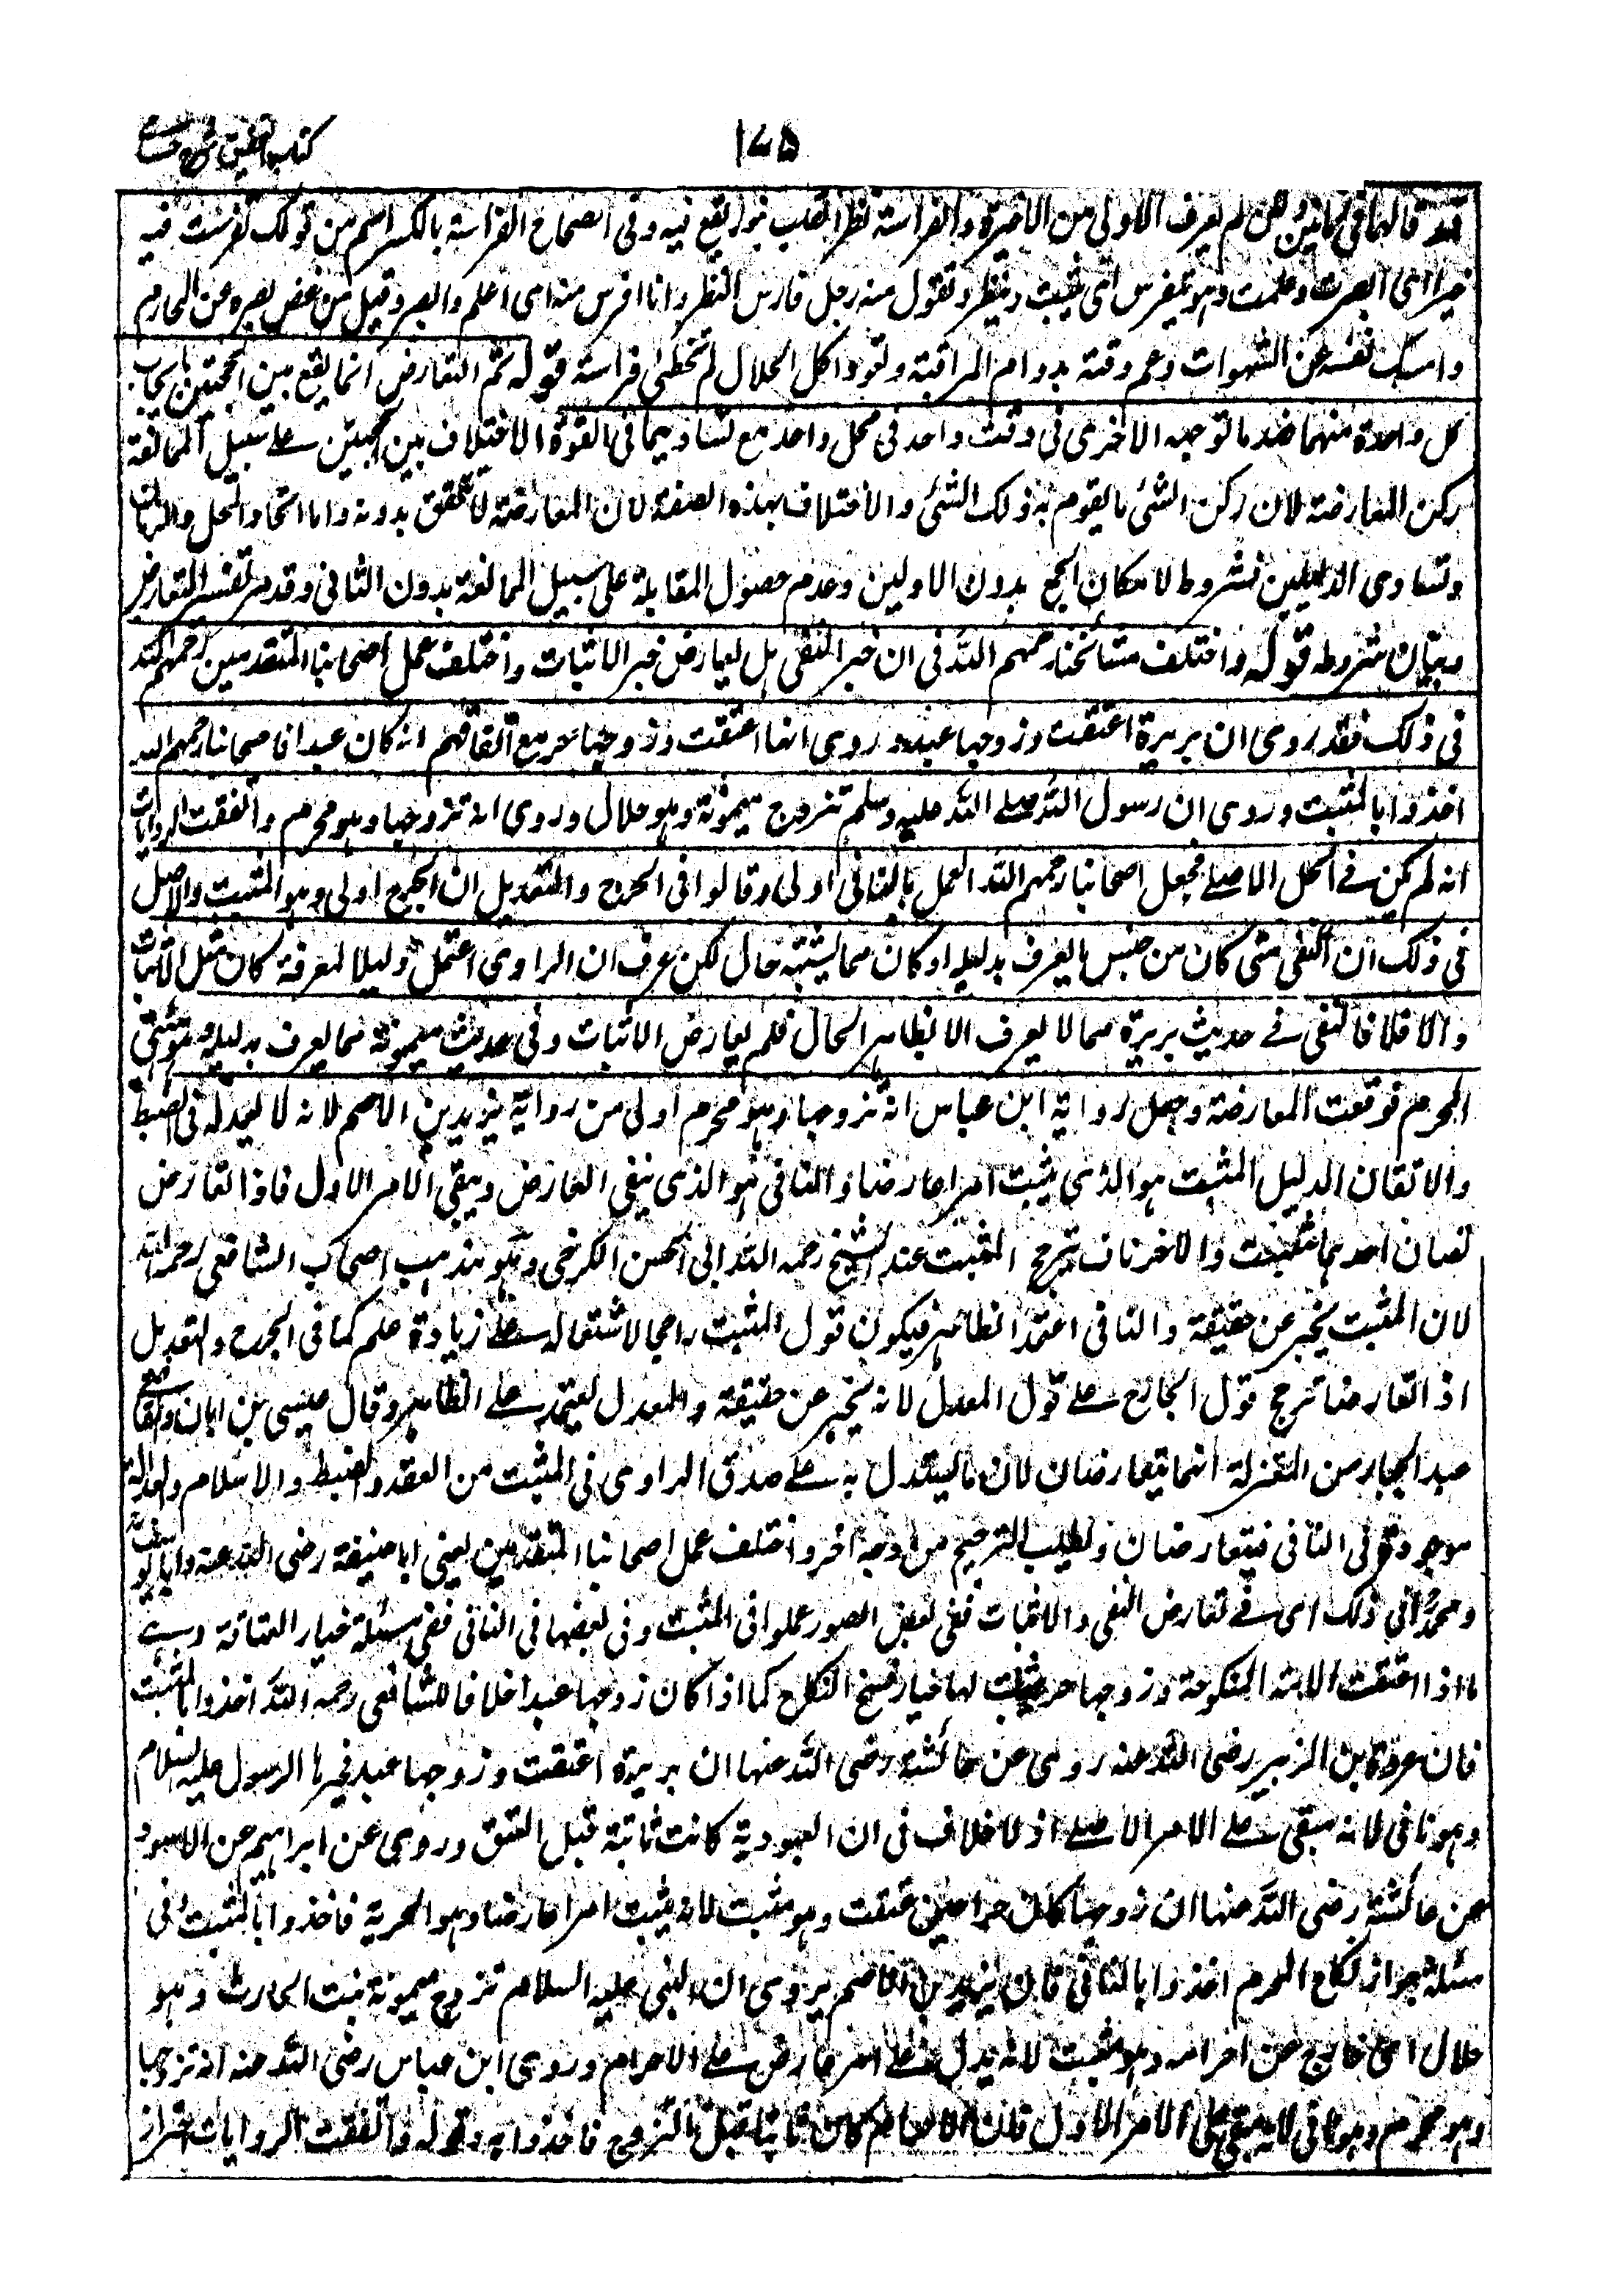 ١٧٥
كتاب التحقيق شرح حسامي
قد قالهما في زمانين لكن لم يعرف الاولى من الاخيرة والفراسة نظر القلب بنور يقع فيه وفى الصحاح الفراسة بالكسر اسم من قولك تفرست فيه
خيرا اى ابصرت وعلمت وهو يتفرس اى يتثبت وينظر وتقول منه رجل فارس النظر وانا افرس منه اى اعلم وابصر وقيل من غض بصره عن المحارم
وامسك نفسه عن الشهوات وعمر وقته بدوام المراقبة وتعود اكل الحلال لم تخطئ فراسته قوله ثم التعارض انما يقع بين الحجتين بايجاب
كل واحدة منهما ضد ما توجبه الاخرى فى وقت واحد فى محل واحد مع تساويهما فى القوة الاختلاف بين الحجتين على سبيل الممانعة
ركن المعارضة لان ركن الشئ ما يقوم به ذلك الشئ والاختلاف بهذه الصفة لان المعارضة لا تتحقق بدونه واما اتحاد المحل والزمان
وتساوى الدليلين فشروط لامكان الجمع بدون الاولين وعدم حصول المقابلة على سبيل الممانعة بدون الثانى وقد مر تفسير التعارض
وبيان شروطه قوله واختلف مشائخنا رحمهم الله فى ان خبر النفى هل يعارض خبر الاثبات واختلف عمل اصحابنا المتقدمين رحمهم الله
فى ذلك فقد روى ان بريرة اعتقت وزوجها عبد وروى انها اعتقت وزوجها حر مع اتفاقهم انه كان عبدا فاصحابنا رحمهم الله
اخذوا بالمثبت وروى ان رسول الله صلى الله عليه وسلم تزوج ميمونة وهو حلال وروى انه تزوجها وهو محرم واتفقت الروايات
انه لم يكن فى الحل الاصلى فجعل اصحابنا رحمهم الله العمل بالنافى اولى وقالوا فى الجرح والتعديل ان الجرح اولى وهو المثبت والاصل
فى ذلك ان النفى متى كان من جنس ما يعرف بدليله او كان مما يشتبه حاله لكن عرف ان الراوى اعتمد دليلا لمعرفة كان مثل الاثبات
والا فلا فالنفى فى حديث بريرة مما لا يعرف الا بظاهر الحال فلم يعارض الاثبات وفى حديث ميمونة مما يعرف بدليله وهو هيئة
المحرم فوقعت المعارضة وجعل رواية ابن عباس انه تزوجها وهو محرم اولى من رواية يزيد بن الاصم لانه لا يعدله فى الضبط
والاتقان الدليل المثبت هو الذى يثبت امرا عارضا والنافى هو الذى ينفى العارض ويبقى الامر الاول فاذا تعارض
نصان احدهما مثبت والآخر ناف ترجح المثبت عند الشيخ رحمه الله ابى الحسن الكرخى وهو مذهب اصحاب الشافعى رحمه الله
لان المثبت يخبر عن حقيقة والنافى اعتمد الظاهر فيكون قول المثبت راجحا لاشتماله على زيادة علم كما فى الجرح والتعديل
اذا تعارضا ترجح قول الجارح على قول المعدل لانه يخبر عن حقيقة والمعدل يعتمد على الظاهر وقال عيسى بن ابان والقاضى
عبد الجبار من المعتزلة انما يتعارضان لان ما يستدل به على صدق الراوى فى المثبت من العقد والضبط والاسلام والعدالة
موجود فى النافى فيتعارضان ويطلب الترجيح من وجه آخر واختلف عمل اصحابنا المتقدمين يعنى ابا حنيفة رضى الله عنه وابا يوسف
ومحمدا فى ذلك اى فى تعارض النفى والاثبات ففى بعض الصور عملوا فى المثبت وفى بعضها فى النافى ففى مسئلة خيار العتاقة وهى
ما اذا اعتقت الامة المنكوحة وزوجها حر يثبت لها خيار فسخ النكاح كما اذا كان زوجها عبدا خلافا للشافعى رحمه الله اخذوا بالمثبت
فان عروة بن الزبير رضى الله عنه روى عن عائشة رضى الله عنها ان بريرة اعتقت وزوجها عبد فخيرها الرسول عليه السلام
وهو نافى لانه مبقى على الامر الاصلى اذ لا خلاف فى ان العبودية كانت ثابتة قبل العتق وروى عن ابراهيم عن الاسود
عن عائشة رضى الله عنها ان زوجها كان حرا حين عتقت وهو مثبت لانه يثبت امرا عارضا وهو الحرية فاخذوا بالمثبت وفى
مسئلة جواز نكاح المحرم اخذوا بالنافى فان يزيد بن الاصم يروى ان النبى عليه السلام تزوج ميمونة بنت الحارث وهو
حلال اى خارج عن احرامه وهو مثبت لانه يدل على امر عارض على الاحرام وروى ابن عباس رضى الله عنه انه تزوجها
وهو محرم وهو نافى لانه مبقى على الامر الاول فان الاحرام كان ثابتا قبل التزوج فاخذوا به وقوله واتفقت الروايات احتراز